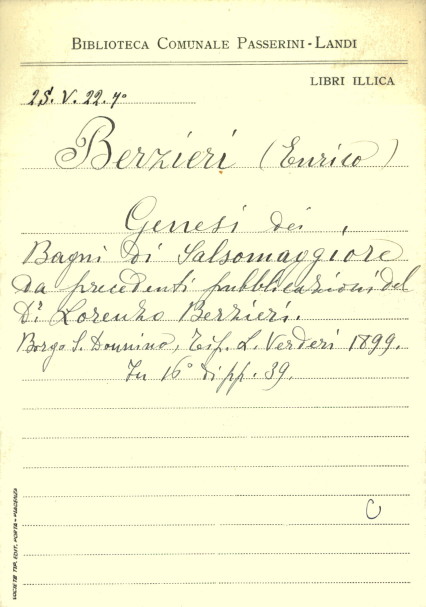 BIBLIOTECA COMUNALE PASSERINI-LANDI
LIBRI ILLICA
2S. V. 22. 7º
Berzieri (Enrico)
Genesi dei
Bagni di Salsomaggiore
da precedenti pubblicazioni del
Dr Lorenzo Berzieri.
Borgo S. Donnino, Tip. L. Verderi 1899.
In 16° di pp. 39.
C
SOCIETÀ TIP. EDIT. PORTA - PIACENZA